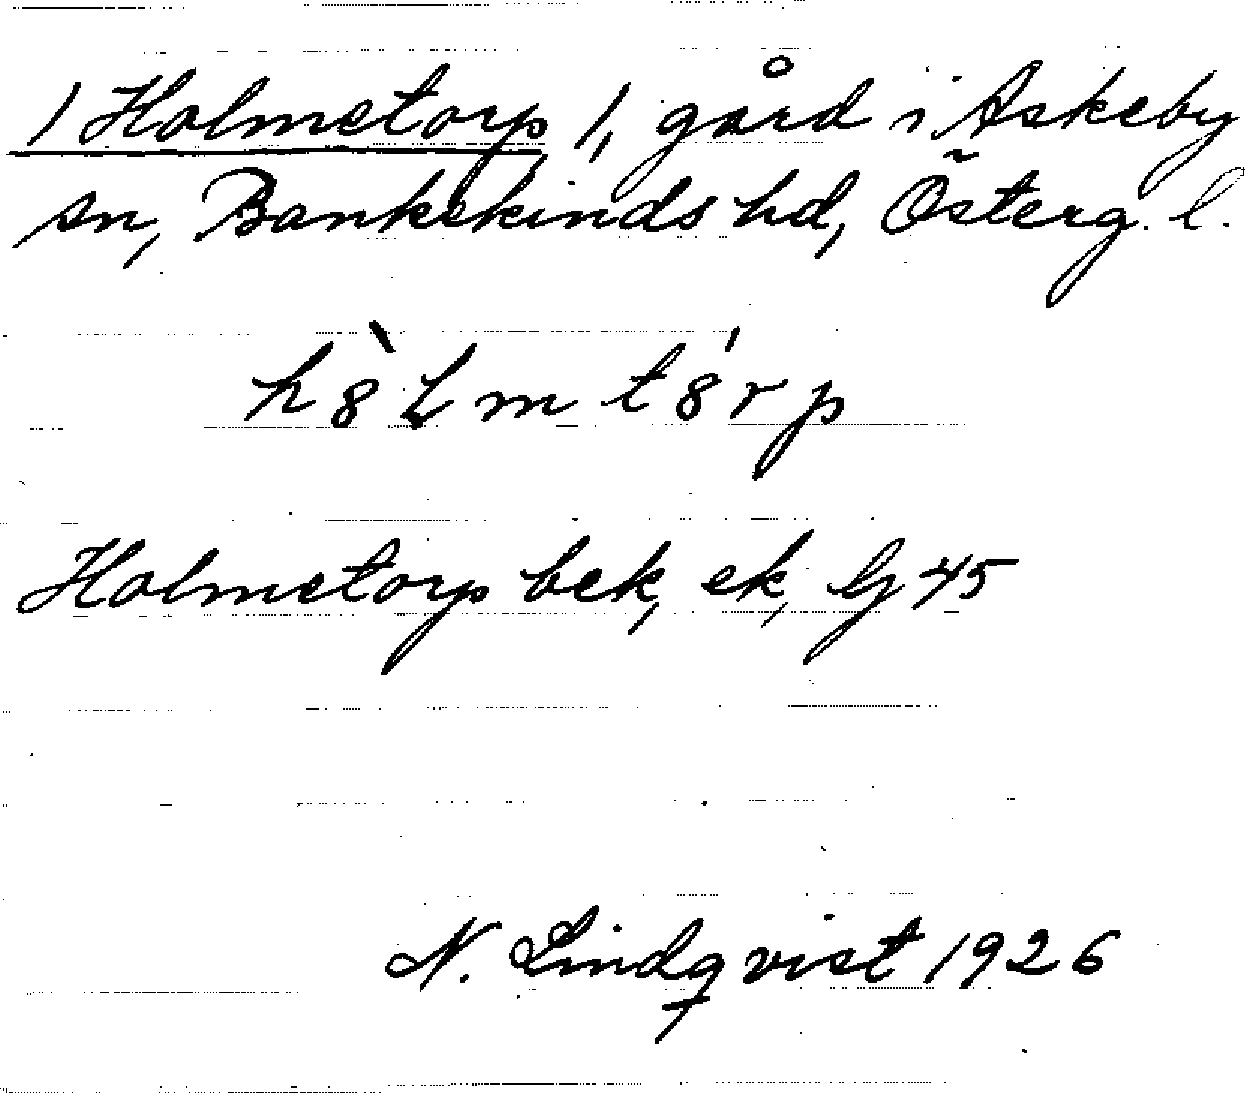 / Holmetorp /, gård i Askeby
sn, Bankekinds hd, Österg. l.
h8̀lmt8́rp
Holmetorp bek, ek, lj 45
N. Lindqvist 1926